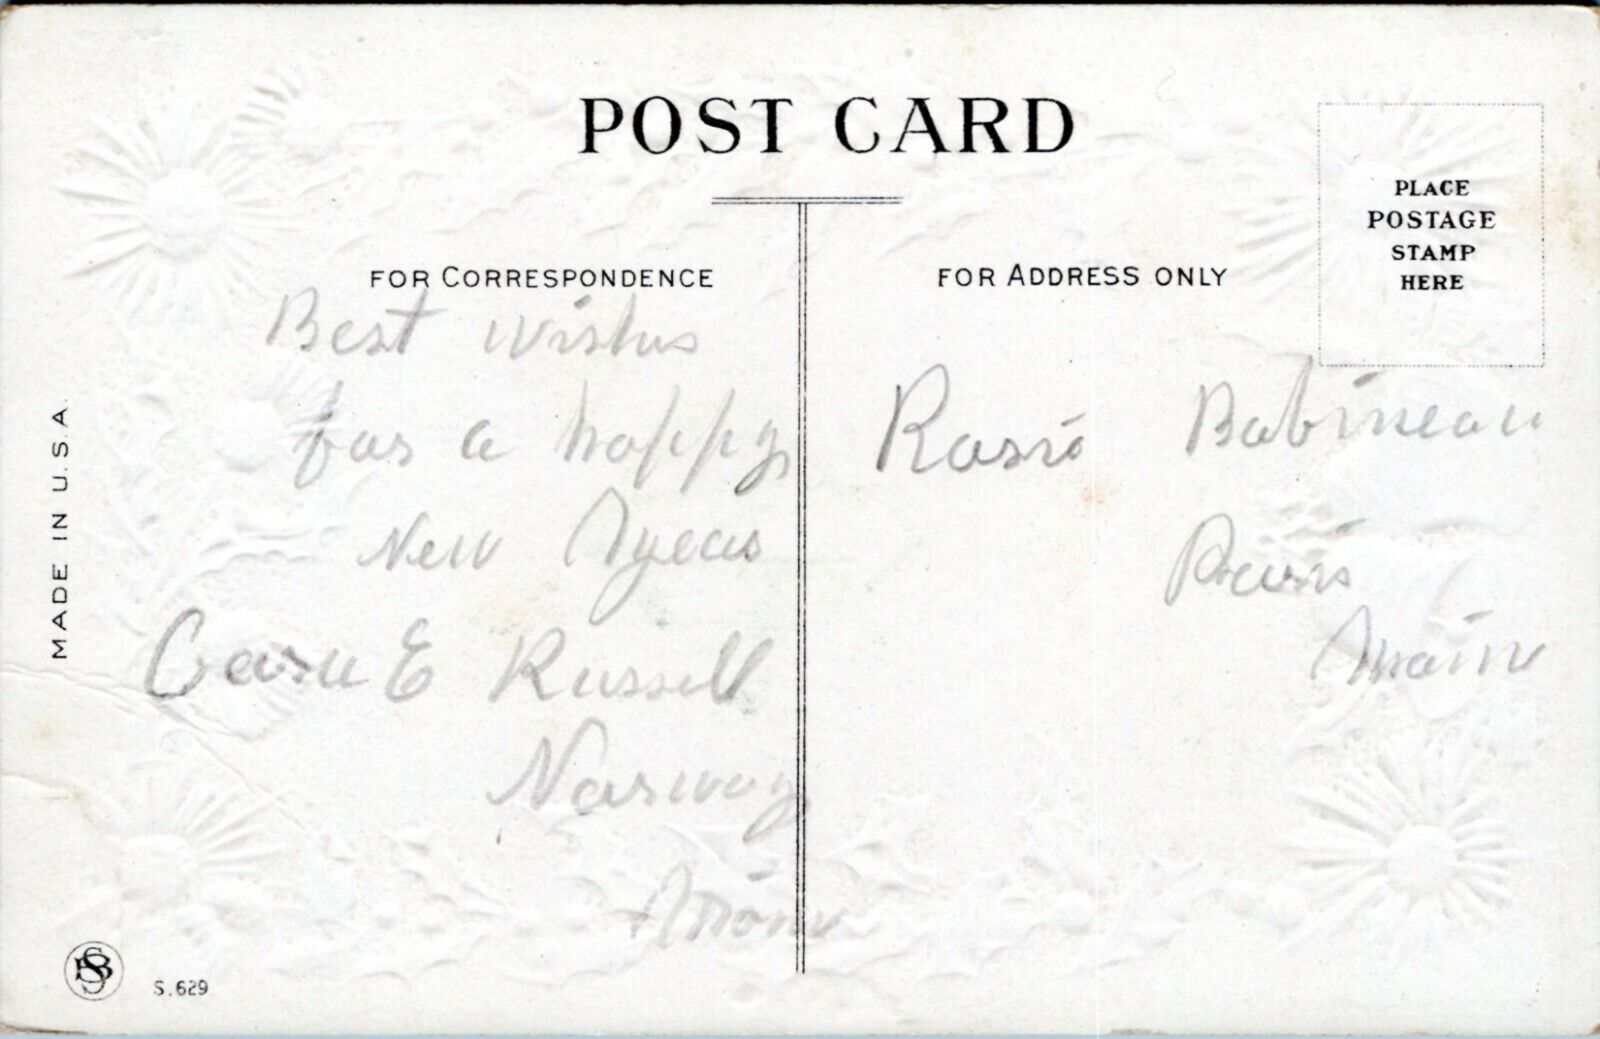 POST CARD
PLACE
POSTAGE
STAMP
HERE
FOR CORRESPONDENCE
Best wishes
for a happy
New year
E Russell
Norway
Maine
FOR ADDRESS ONLY
Rosie Babineau
Paris
Maine
MADE IN U.S.A.
S.629